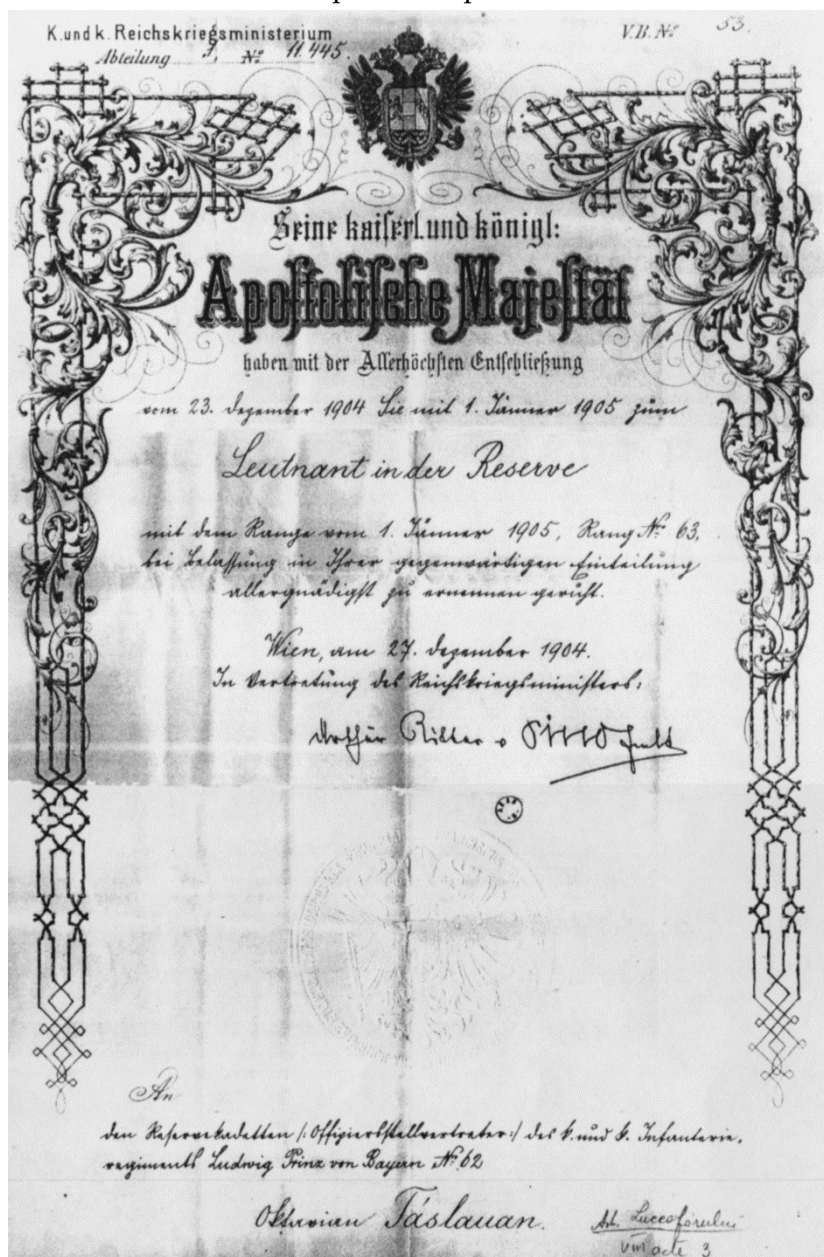 K. und k. Reichskriegsministerium
Abteilung 3, Nº 11.445.
V.B. Nº 53.
Seine kaiserl. und königl:
Apostolische Majestät
haben mit der Allerhöchsten Entschließung
vom 23. Dezember 1904 Sie mit 1. Jänner 1905 zum
Leutnant in der Reserve
mit dem Range vom 1. Jänner 1905, Rang Nº 63,
bei Belassung in Ihrer gegenwärtigen Einteilung
allergnädigst zu ernennen geruht.
Wien, am 27. Dezember 1904.
In Vertretung des Reichskriegsministers:
Arthur Ritter v
An
den Reservekadetten /: Offiziersstellvertreter :/ des k. und k. Infanterie-
regiments Ludwig Prinz von Bayern Nº 62
Oktavian Táslauan.
Arh. Luceafărului
VIII acte 3